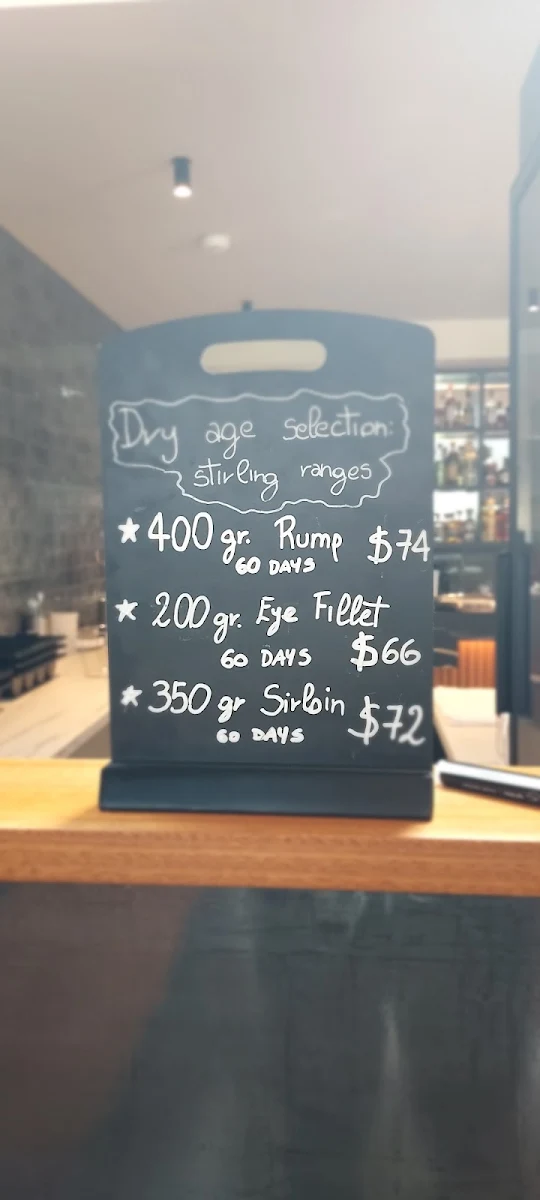 Dry age selection:
stirling ranges
★ 400 gr. Rump $74
60 DAYS
★ 200 gr. Eye Fillet
60 DAYS $66
★ 350 gr Sirloin $72
60 DAYS